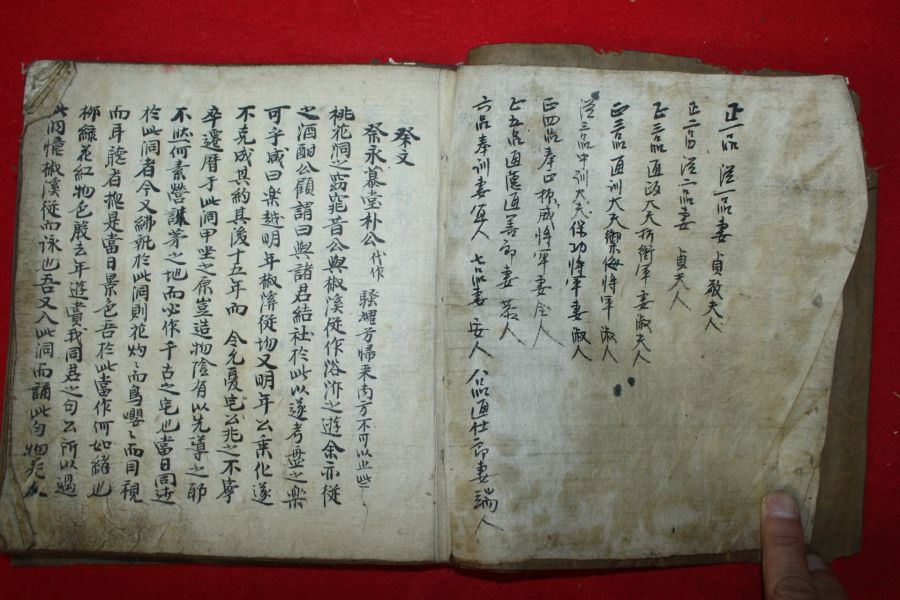 正一品 從一品妻 貞敬夫人
正二品 從二品妻 貞夫人
正三品通政大夫折衝將軍妻淑夫人
正三品通訓大夫禦侮將軍淑人
從三品中訓大夫保功將軍妻淑人
正四品奉正振威將軍妻令人
正五品通德通善郎妻恭人
六品奉訓妻宜人 七品妻安人 八品通仕郎妻端人
祭文
祭永慕堂朴公代作 騷耀芳歸來南方不可以止些
桃花洞之窈窕昔公與椒溪從作浴沂之遊余亦從
之酒酣公顧謂曰與諸君結社於此以遂考盤之樂
可乎咸曰樂越明年椒溪從物又明年公乘化遂
不克成其約其後十五年而 令允憂宅公兆之不寧
卒遷厝于此洞甲坐之原豈造物陰有以先導之耶
不然何素營誅茅之地而必作千古之宅也當日同遊
於此洞者今又紼於此洞則花灼灼而鳥嚶嚶而目視
而耳聽者摠是當日景色吾於此當作何如緖也
柳綠花紅物色般去年遊賞我同君之句公所以過
此洞憶椒溪從而詠也吾又入此洞而誦此句物